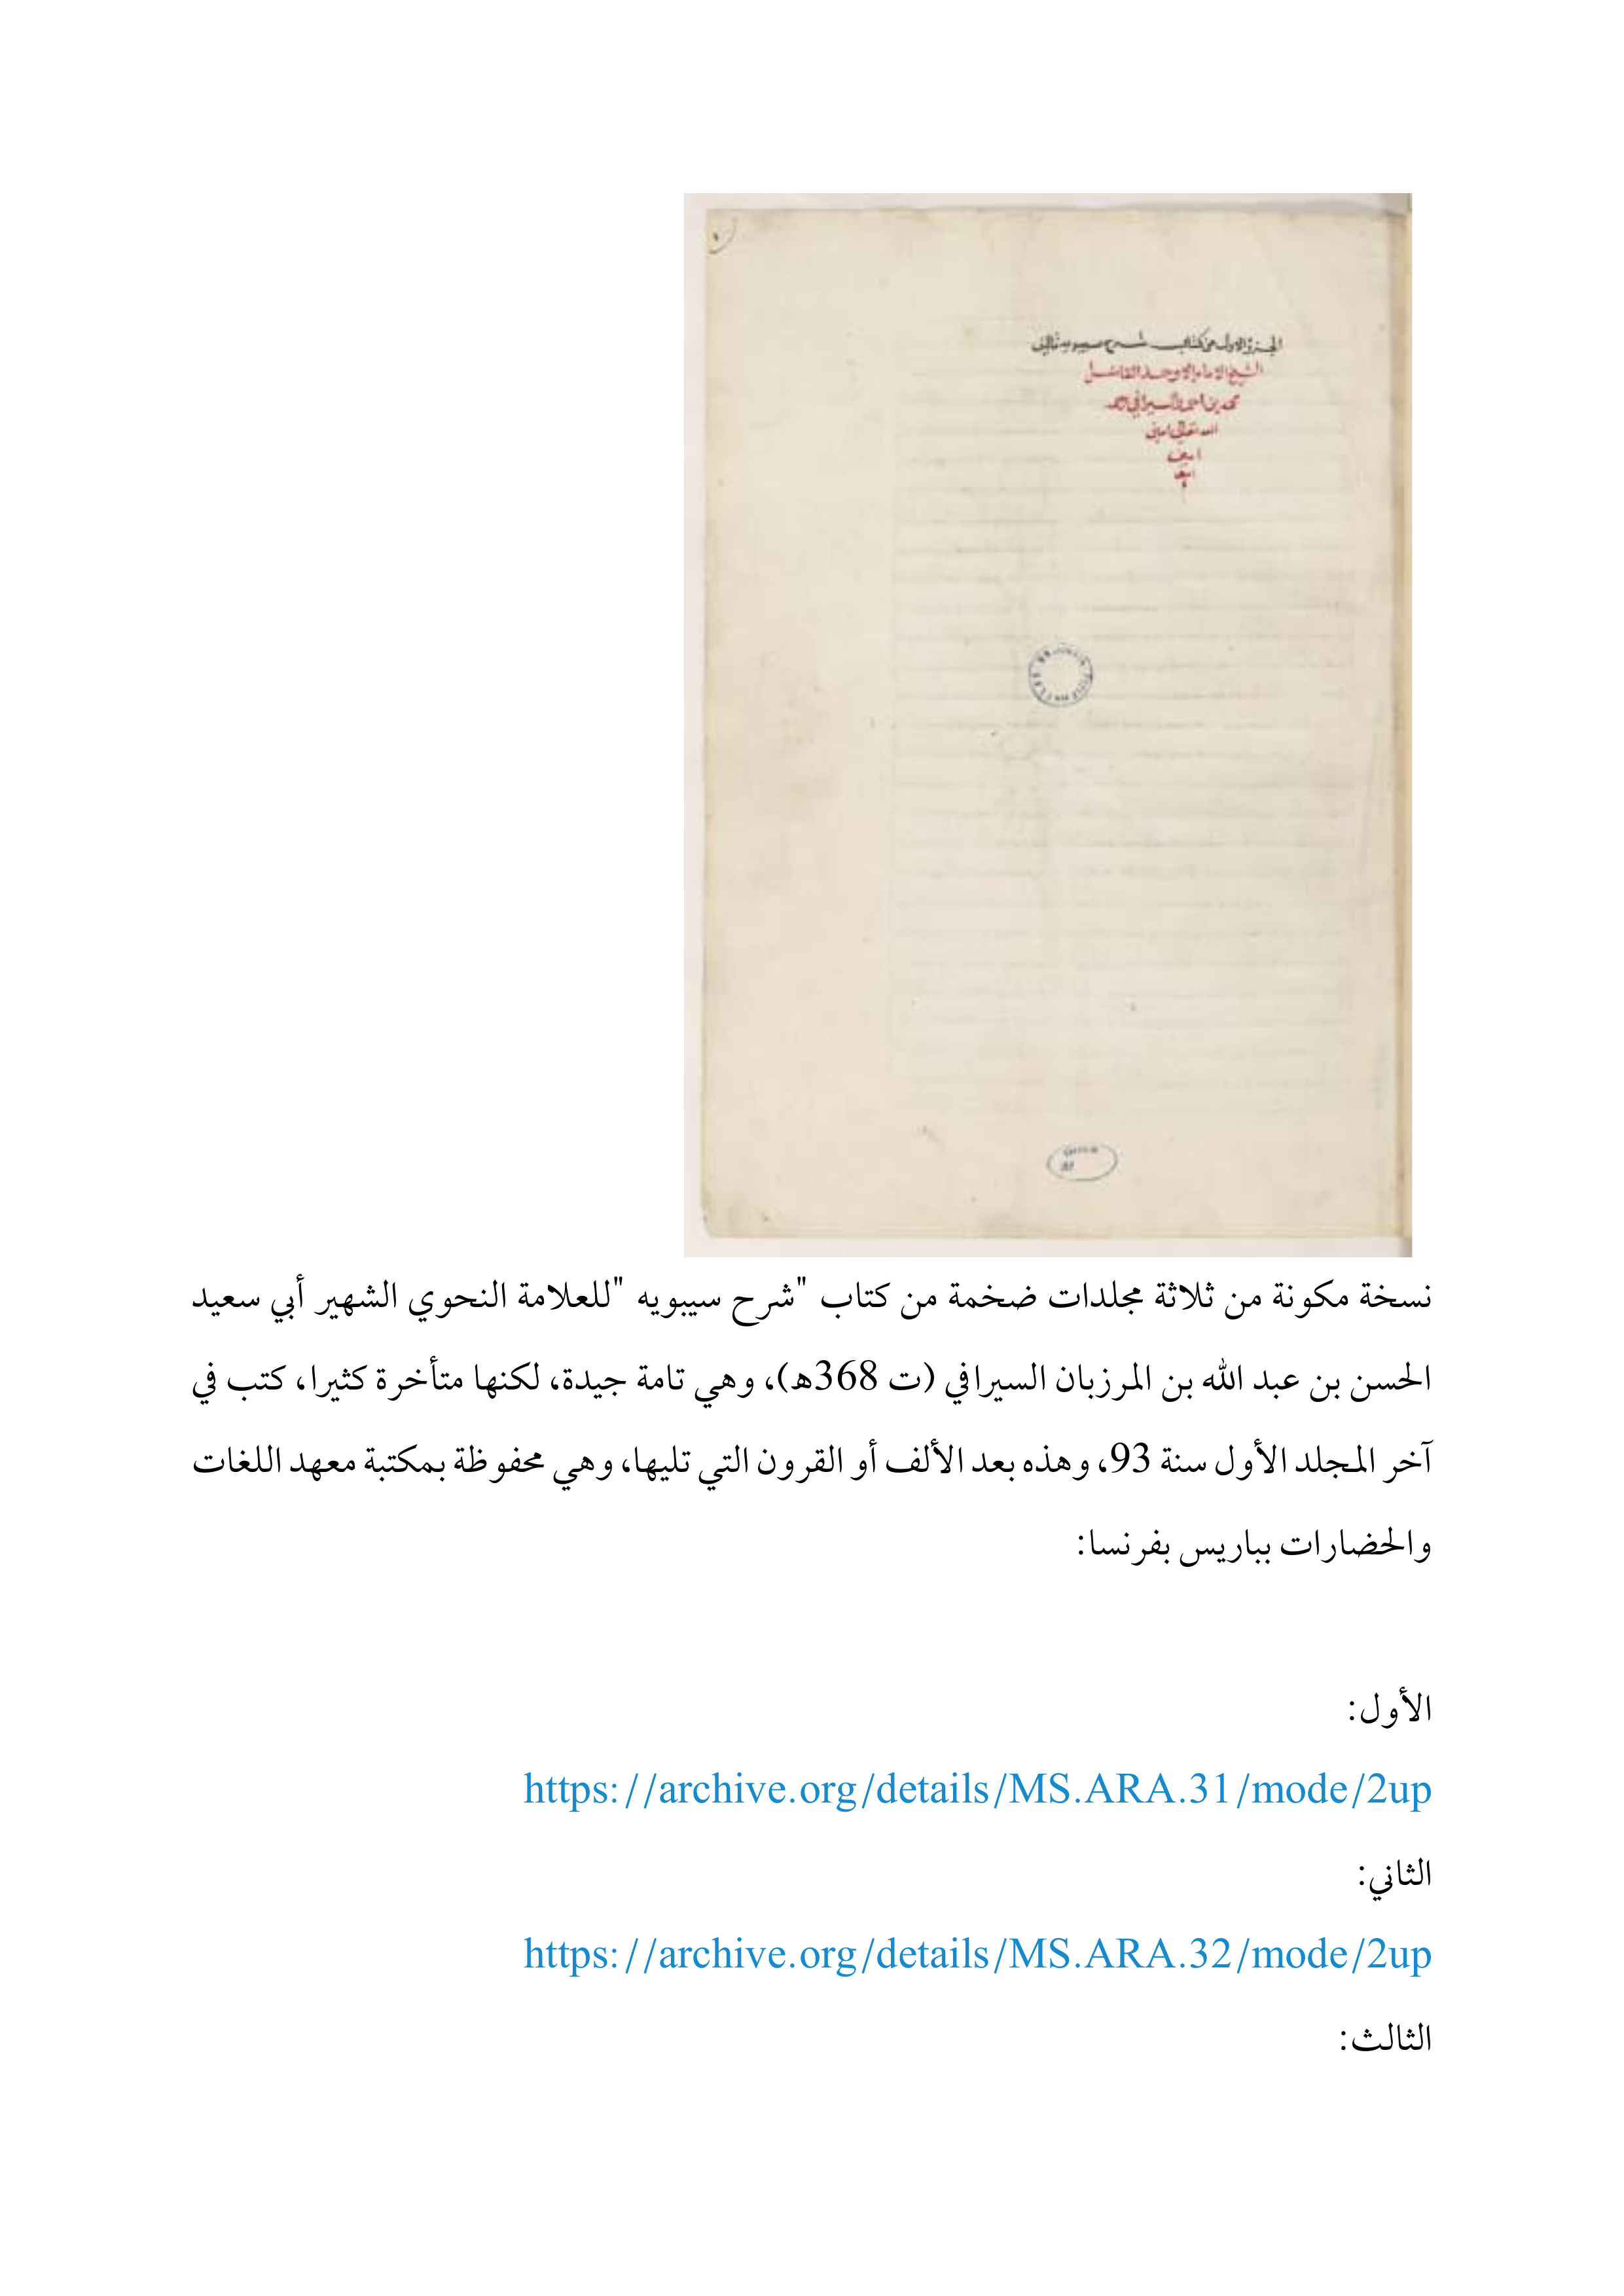 الجزء الاول من كتاب شرح سيبويه تاليف
الشيخ الامام الاوحد الفاضل
محمد بن السيرافي رحمه
الله تعالى امين
امين
امين
نسخة مكونة من ثلاثة مجلدات ضخمة من كتاب "شرح سيبويه "للعلامة النحوي الشهير أبي سعيد
الحسن بن عبد الله بن المرزبان السيرافي (ت 368هـ)، وهي تامة جيدة، لكنها متأخرة كثيرا، كتب في
آخر المجلد الأول سنة 93، وهذه بعد الألف أو القرون التي تليها، وهي محفوظة بمكتبة معهد اللغات
والحضارات بباريس بفرنسا:
الأول:
https://archive.org/details/MS.ARA.31/mode/2up
الثاني:
https://archive.org/details/MS.ARA.32/mode/2up
الثالث: